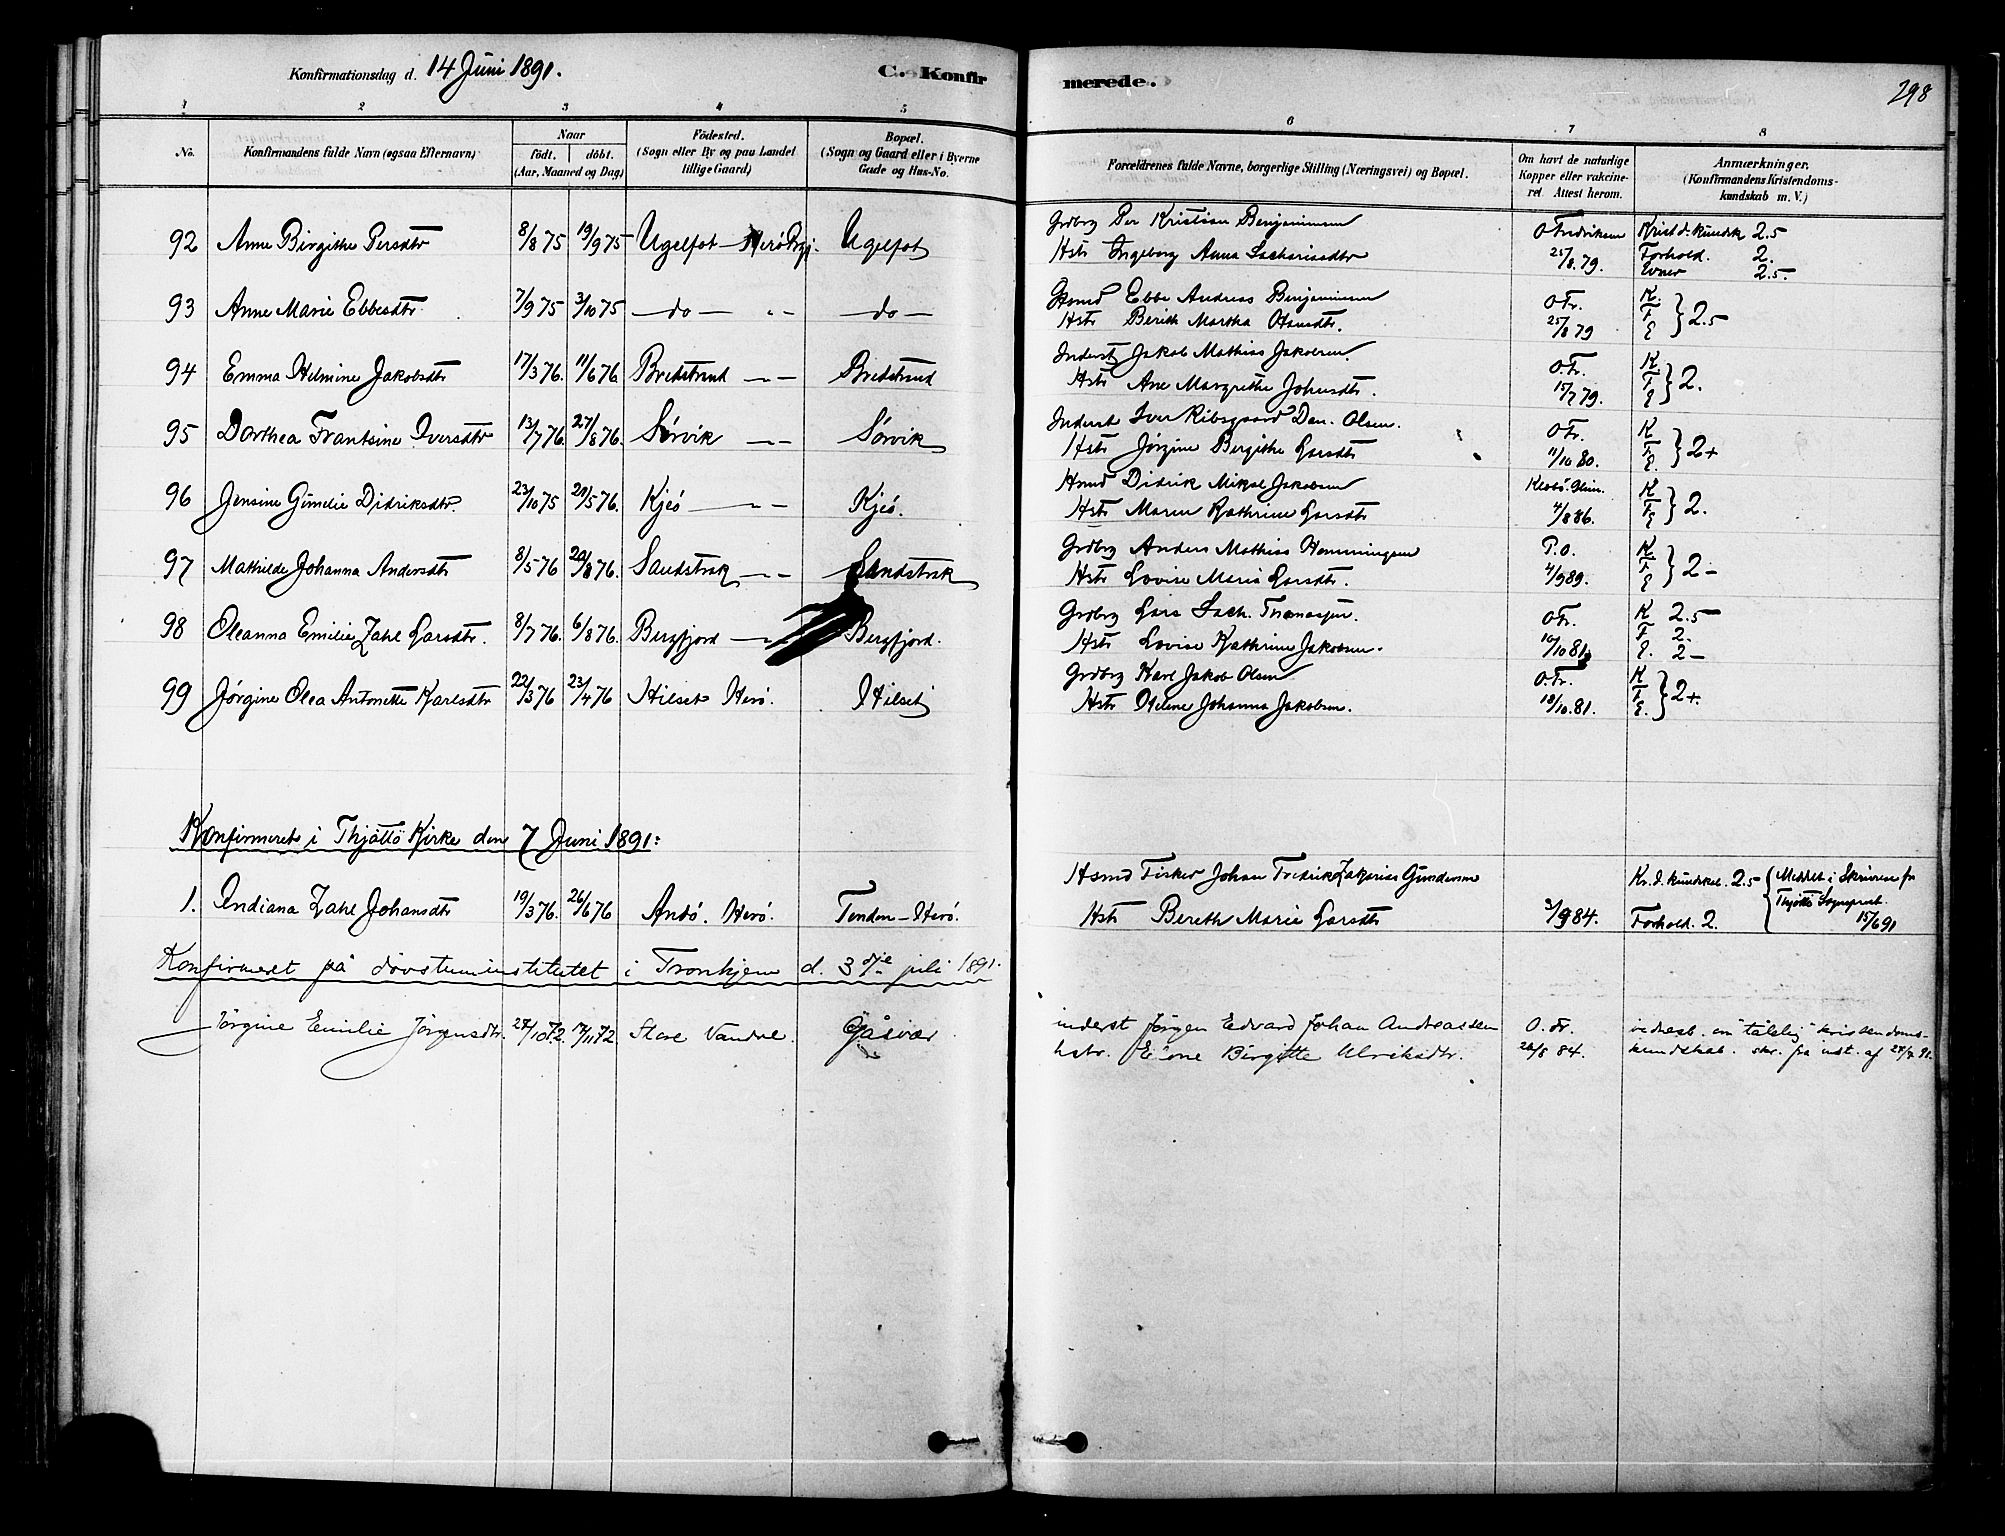 Konfirmationsdag d. 14 Juni 1891.
C. Konfirmerede.
298
1 2 3 4 5 6 7 8
No.
Konfirmandens fulde Navn (ogsaa Efternavn)
Naar
født. døbt.
(Aar, Maaned og Dag)
Fødested.
(Sogn eller By og paa Landet
tillige Gaard)
Bopæl.
(Sogn og Gaard eller i Byerne
Gade og Hus-No.
Forældrenes fulde Navne, borgerlige Stilling (Næringsvei) og Bopæl.
Om havt de naturlige
Kopper eller vakcine-
ret Attest herom.
Anmærkninger.
(Konfirmandens Kristendoms-
kundskab m. V.)
92 Anne Birgithe Persdtr 8/8 75 19/9 75 Ugelfot - Herö Prgj. Ugelfot
Grdbrg Per Kristian Benjaminsen O Fredriksen Krist.d. kundsk 2.5
Hstr Ingeborg Anna Sachariasdtr 25/8.79. Forhold. 2.
Evner 2.5.
93 Anne Marie Ebbesdtr. 7/9 75 3/10 75 — do — „ — do —
Hsmd Ebbe Andreas Benjaminsen O Fr. K.
Hstr Berith Martha Olsdtr. 25/8 79 F. E } 2.5
94 Emma Helmine Jakobsdtr 17/3 76. 11/6 76 Bredstrand — „ — Bredstrand
Inderst Jakob Mathias Jakobsen. O Fr. K.
Hstr Ane Margrethe Johnsdtr. 15/7 79. F E } 2.
95 Dorthea Frantsine Iversdtr 13/7 76. 27/8 76. Sörvik — „ — Sörvik
Inderst Iver Ribsgaard Dan. Olsen. O Fr. K
Hstr Jörgine Bergithe Larsdtr 11/10 80. F E. } 2+
96 Jensine Gunelie Didriksdtr. 23/10 75 21/5 76. Kjeö — „ — Kjeö.
Hsmd Didrik Mikal Jakobsen K
Hstr Maren Kathrine Larsdtr 4/8 86. F E } 2.
97 Mathilde Johanna Andersdtr 8/5 76 20/8 76. Sandstrak — „ — Sandstrak
Grdbrg Anders Mathias Hemmingsen P.O. K
Hstr Lovise Marie Larsdtr. 4/9 89. F E } 2 –
98 Oleanna Emilie Zahl Larsdtr. 8/7 76. 6/8 76. Bergfjord — „ Bergfjord.
Grdbrg Lars Sach. Thomassen. O Fr. K 2.5
Hstr Lovise Kathrine Jakobsen. 10/10 81. F. 2.
E. 2 –
99 Jørgine Olea Antonette Karlsdtr 22/3 76 23/4 76 Hilset Herö. Hilset
Grdbrg Karl Jakob Olsen O. Fr. K
Hstr Helene Johanna Jakobsen. 18/10. 81. F E. } 2+.
Konfirmeret i Thjøttö Kirke den 7 Juni 1891:
1. Indiana Zahl Johansdtr 19/3 76. 26/6 76 Andö. Herö. Tenden – Herö.
Hsmd Fisker Johan Fredrik Zakarias Gundersen Kr. d. kundskab. 2.5 Meddelt i Skrivelse fr
Hstr Bereth Marie Larsdtr 3/9 84. Forhold. 2. Thjøttö Sogneprest 15/6 91
Konfirmeret på døvstuminstitutet i Tronhjem d. 3dje juli 1891.
Jørgine Emilie Jørgensdtr. 27/10 72. 17/11 72 Store Vandve. Gåsvær.
inderst Jørgen Edvard Johan Andreassen O. Fr. vidnesb. om "tålelig" kristendoms-
hstr. Birgitte Ulriksdtr. 26/8 84. kundskab. skr. fra inst. af 27/7. 91.